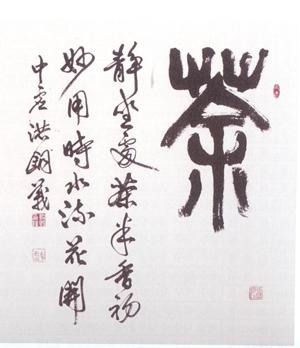 茶
静坐处茶半香初
妙用時水流花開
中宝洪钢义